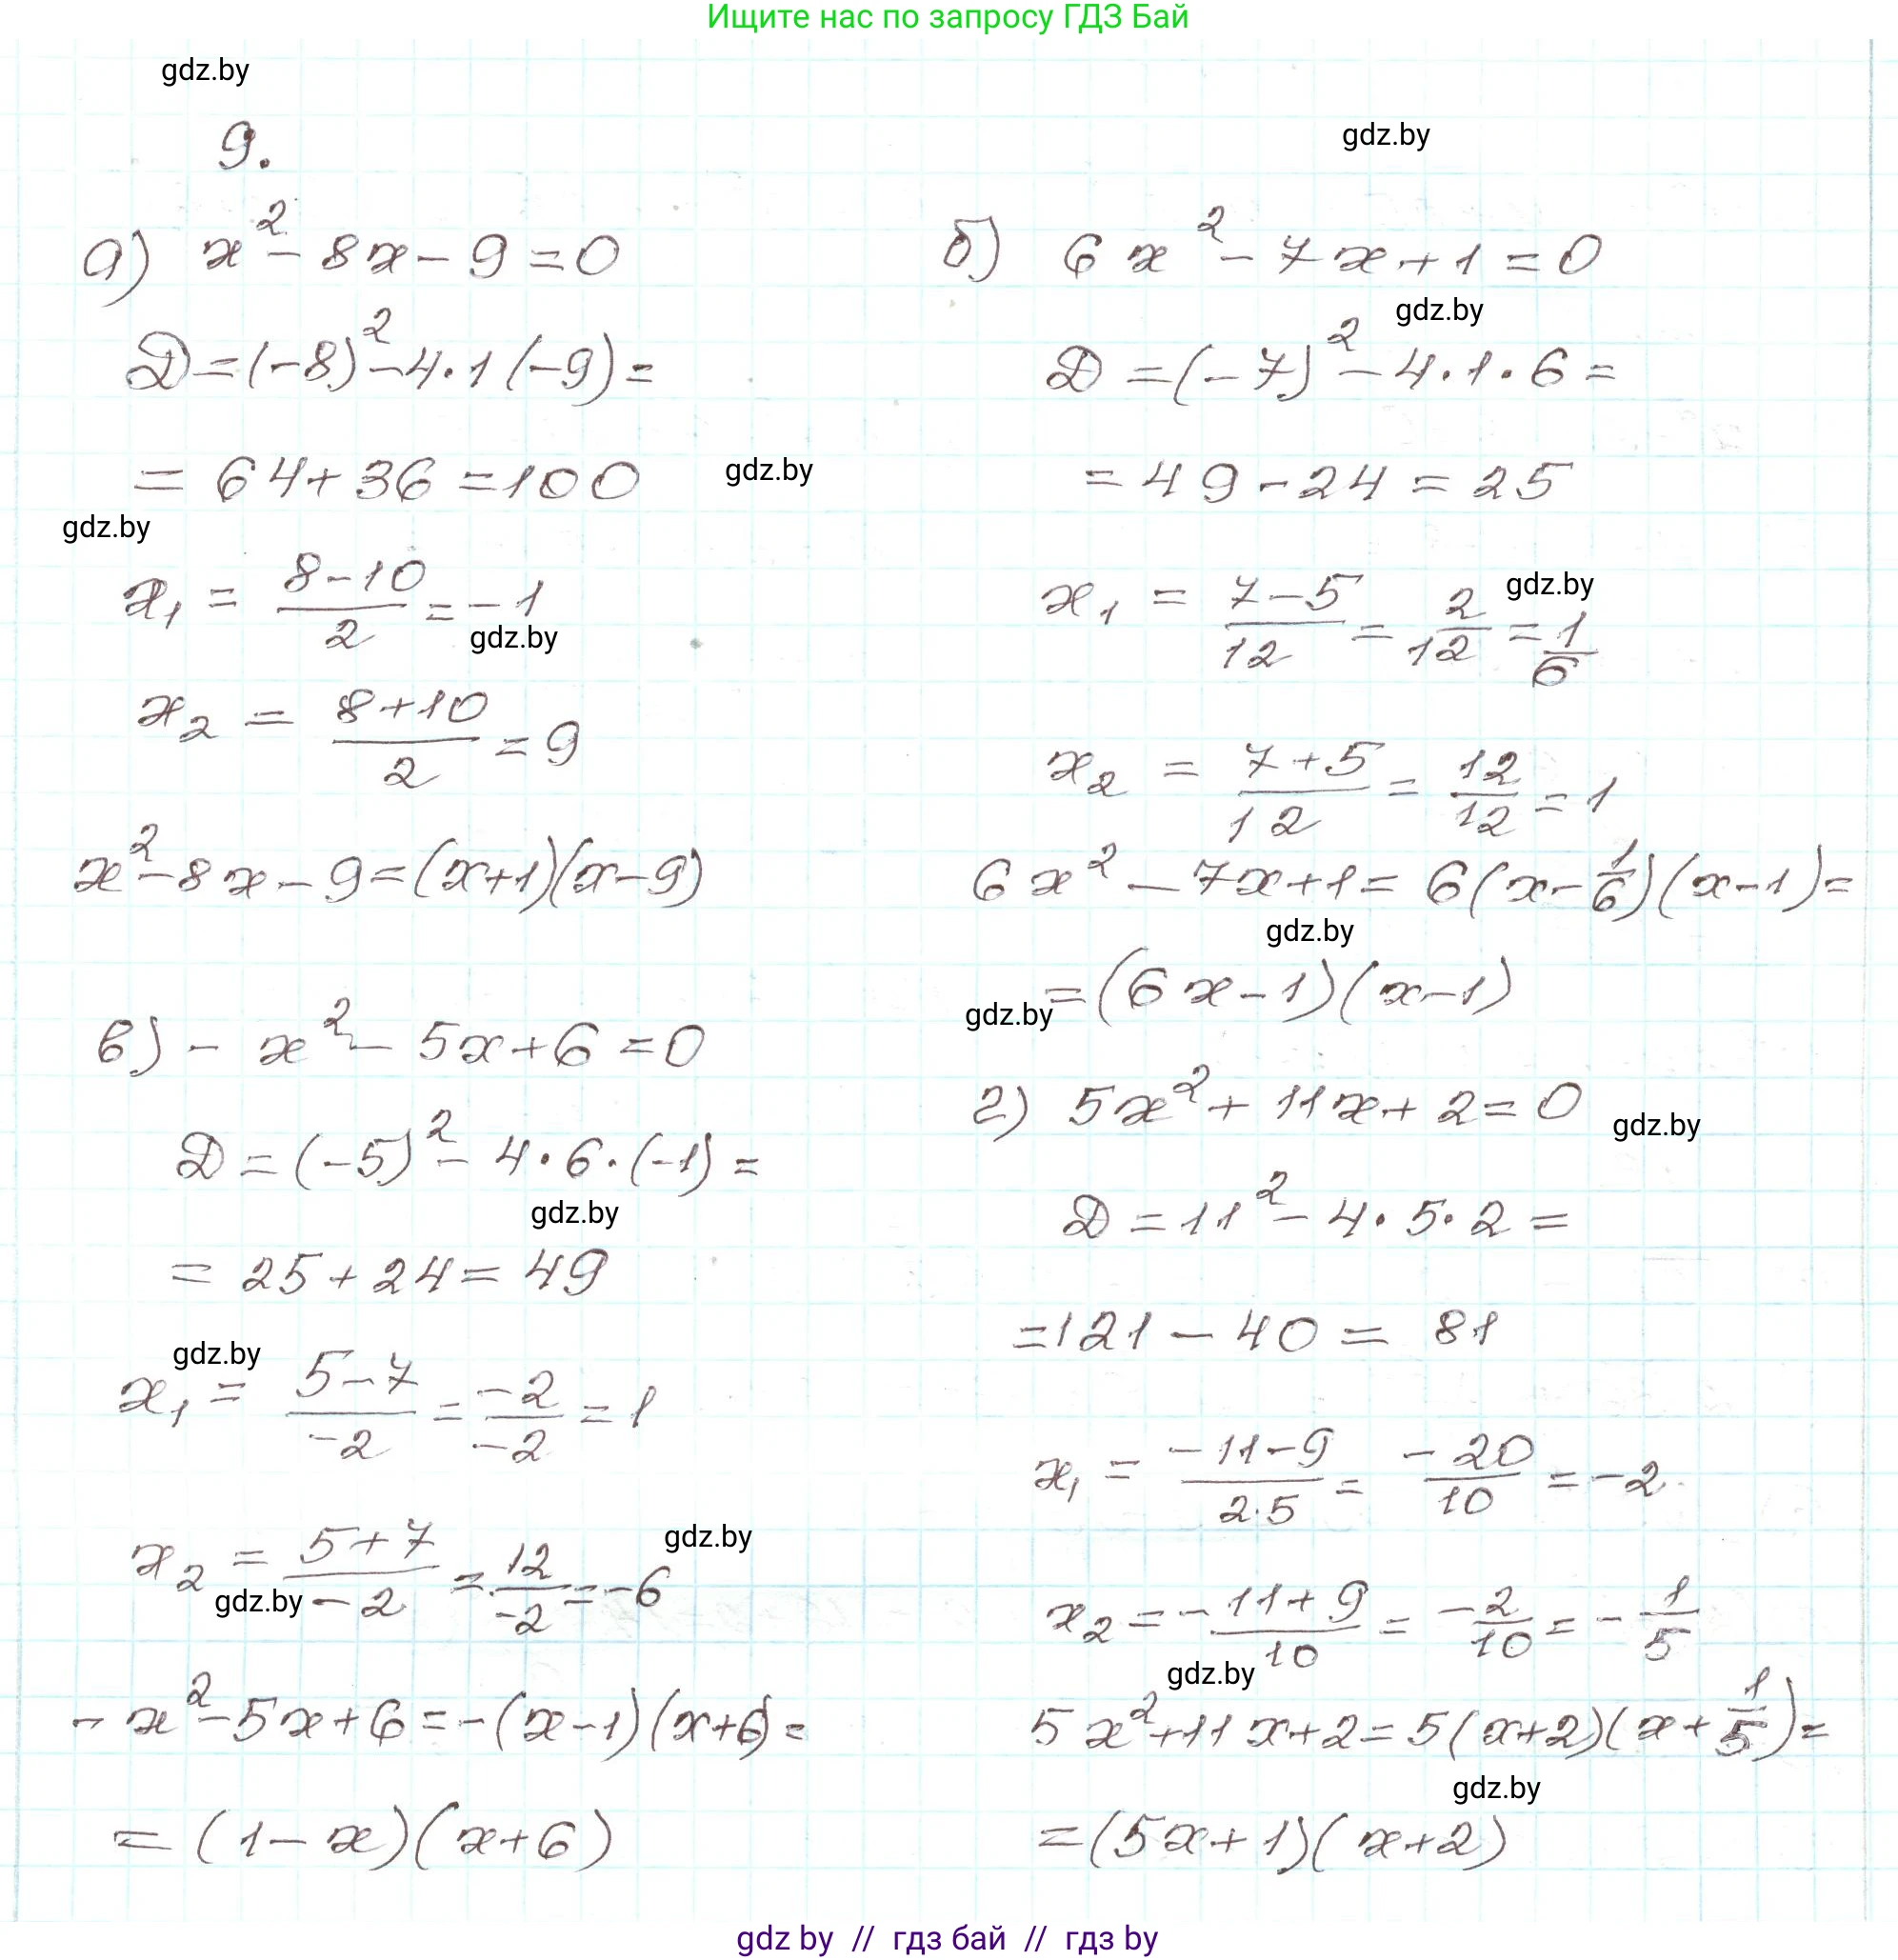 Ищите нас по запросу ГДЗ Бай
gdz.by
9.
gdz.by
а) x² - 8x - 9 = 0
Д = (-8)² - 4·1(-9) =
= 64 + 36 = 100
gdz.by
gdz.by
x₁ = (8-10)/2 = -1
gdz.by
x₂ = (8+10)/2 = 9
x² - 8x - 9 = (x+1)(x-9)
б) 6x² - 7x + 1 = 0
gdz.by
Д = (-7)² - 4·1·6 =
= 49 - 24 = 25
gdz.by
x₁ = (7-5)/12 = 2/12 = 1/6
x₂ = (7+5)/12 = 12/12 = 1
6x² - 7x + 1 = 6(x - 1/6)(x-1) =
gdz.by
= (6x-1)(x-1)
gdz.by
в) - x² - 5x + 6 = 0
Д = (-5)² - 4·6·(-1) =
gdz.by
= 25 + 24 = 49
gdz.by
x₁ = (5-7)/-2 = -2/-2 = 1
gdz.by
x₂ = (5+7)/-2 = 12/-2 = -6
gdz.by
- x² - 5x + 6 = -(x-1)(x+6) =
= (1-x)(x+6)
г) 5x² + 11x + 2 = 0
gdz.by
Д = 11² - 4·5·2 =
= 121 - 40 = 81
x₁ = (-11-9)/2·5 = -20/10 = -2
x₂ = -11+9/10 = -2/10 = -1/5
gdz.by
5x² + 11x + 2 = 5(x+2)(x + 1/5) =
gdz.by
= (5x+1)(x+2)
gdz by // гдз бай // гдз by